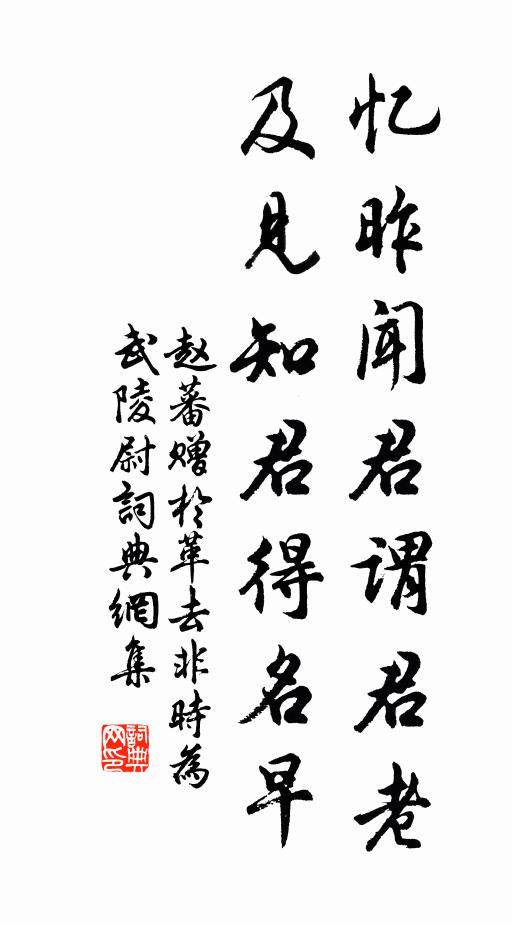 忆昨闻君谓君老
及见知君得名早
赵蕃赠於革去非時為
武陵尉詞典網集
詞典网印